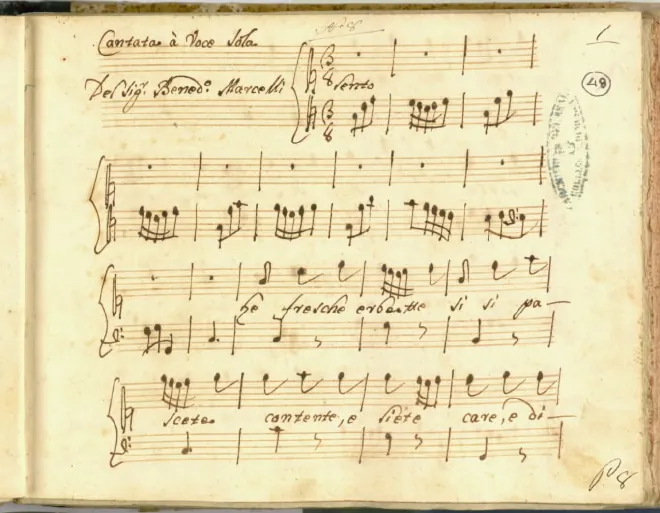 Cantata à Voce Sola
1
49
Del Sigr. Benedo. Marcelli
3
8
Lento
3
8
he fresche erbette si si pa-
scete contente, e siete care, e di-
P. 8